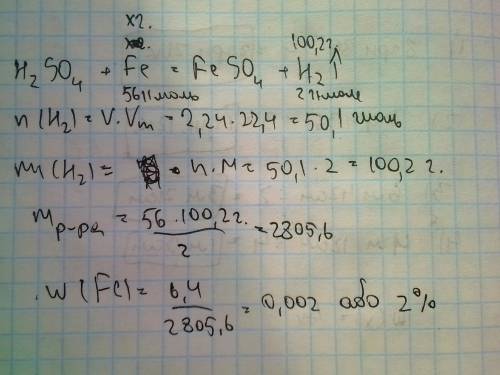 x2. 100,2г
H₂SO₄ + Fe = FeSO₄ + H₂↑
56г/моль 2г/моле
n(H₂) = V·Vm = 2,24·22,4 = 50,1 г/моль
m(H₂) = n·M = 50,1·2 = 100,2 г.
mр-ра = 56·100,2г. / 2 = 2805,6
w(Fe) = 6,4 / 2805,6 = 0,002 або 2%